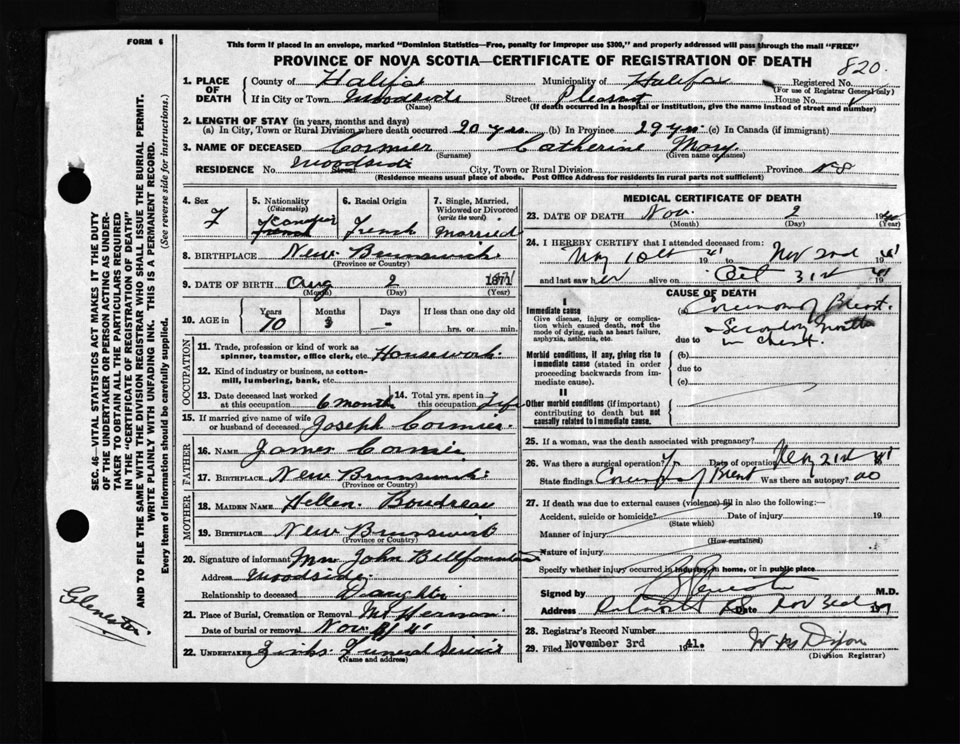 FORM 6
This form if placed in an envelope, marked "Dominion Statistics—Free, penalty for improper use $300," and properly addressed will pass through the mail "FREE"
PROVINCE OF NOVA SCOTIA—CERTIFICATE OF REGISTRATION OF DEATH
820
1. PLACE OF DEATH
County of Halifax Municipality of Halifax Registered No.
(For use of Registrar General only)
If in City or Town Woodside Street Pleasant House No.
(Name) (If death occurred in a hospital or institution, give the name instead of street and number)
2. LENGTH OF STAY (in years, months and days)
(a) In City, Town or Rural Division where death occurred 20 yrs. (b) In Province 29 yrs. (c) In Canada (if immigrant)
3. NAME OF DECEASED Cormier Catherine Mary
(Surname) (Given name or names)
RESIDENCE No. Woodside Street City, Town or Rural Division Province N S
(Residence means usual place of abode. Post Office Address for residents in rural parts not sufficient)
4. Sex F
5. Nationality (Citizenship)
6. Racial Origin French
7. Single, Married, Widowed or Divorced (write the word) Married
8. BIRTHPLACE New Brunswick
(Province or Country)
9. DATE OF BIRTH Aug 2 1871
(Month) (Day) (Year)
10. AGE in Years 70 Months 3 Days — If less than one day old hrs. or min.
OCCUPATION
11. Trade, profession or kind of work as spinner, teamster, office clerk, etc. Housework.
12. Kind of industry or business, as cotton-mill, lumbering, bank, etc.
13. Date deceased last worked at this occupation 6 months
14. Total yrs. spent in this occupation Life
15. If married give name of wife or husband of deceased Joseph Cormier
FATHER
16. NAME James Cormier
17. BIRTHPLACE New Brunswick
(Province or Country)
MOTHER
18. MAIDEN NAME Hellen Boudreau
19. BIRTHPLACE New Brunswick
(Province or Country)
20. Signature of informant Mrs John
Address Woodside
Relationship to deceased Daughter
21. Place of Burial, Cremation or Removal Mt Herman
Date of burial or removal Nov
22. UNDERTAKER Funeral Service
(Name and address)
MEDICAL CERTIFICATE OF DEATH
23. DATE OF DEATH Nov. 2 19
(Month) (Day) (Year)
24. I HEREBY CERTIFY that I attended deceased from:
19 41 to Nov 2nd 19 41
and last saw her alive on Oct 31st 19 41
CAUSE OF DEATH
I
Immediate cause
Give disease, injury or complication which caused death, not the mode of dying, such as heart failure, asphyxia, asthenia, etc.
(a) of Breast.
Secondary Growth
due to in chest.
Morbid conditions, if any, giving rise to immediate cause (stated in order proceeding backwards from immediate cause).
(b)
due to
(c)
II
Other morbid conditions (if important) contributing to death but not causally related to immediate cause.
25. If a woman, was the death associated with pregnancy?
26. Was there a surgical operation? Date of operation 21st 41
State findings of Breast Was there an autopsy? no
27. If death was due to external causes (violence) fill in also the following:—
Accident, suicide or homicide? Date of injury 19
(State which)
Manner of injury
(How sustained)
Nature of injury
Specify whether injury occurred in industry, in home, or in public place
Signed by M.D.
Address Date Nov 3rd
28. Registrar's Record Number
29. Filed November 3rd 1941.
(Division Registrar)
SEC. 46—VITAL STATISTICS ACT MAKES IT THE DUTY
OF THE UNDERTAKER OR PERSON ACTING AS UNDER-
TAKER TO OBTAIN ALL THE PARTICULARS REQUIRED
IN THE "CERTIFICATE OF REGISTRATION OF DEATH"
AND TO FILE THE SAME WITH THE DIVISION REGISTRAR WHO SHALL ISSUE THE BURIAL PERMIT.
WRITE PLAINLY WITH UNFADING INK. THIS IS A PERMANENT RECORD.
Every item of information should be carefully supplied. (See reverse side for instructions.)